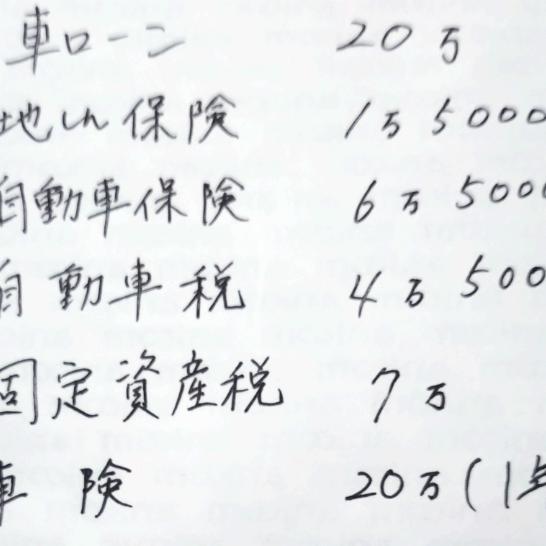 車ローン 20万
地しん保険 1万5000
自動車保険 6万5000
自動車税 4万500
固定資産税 7万
車険 20万(1年